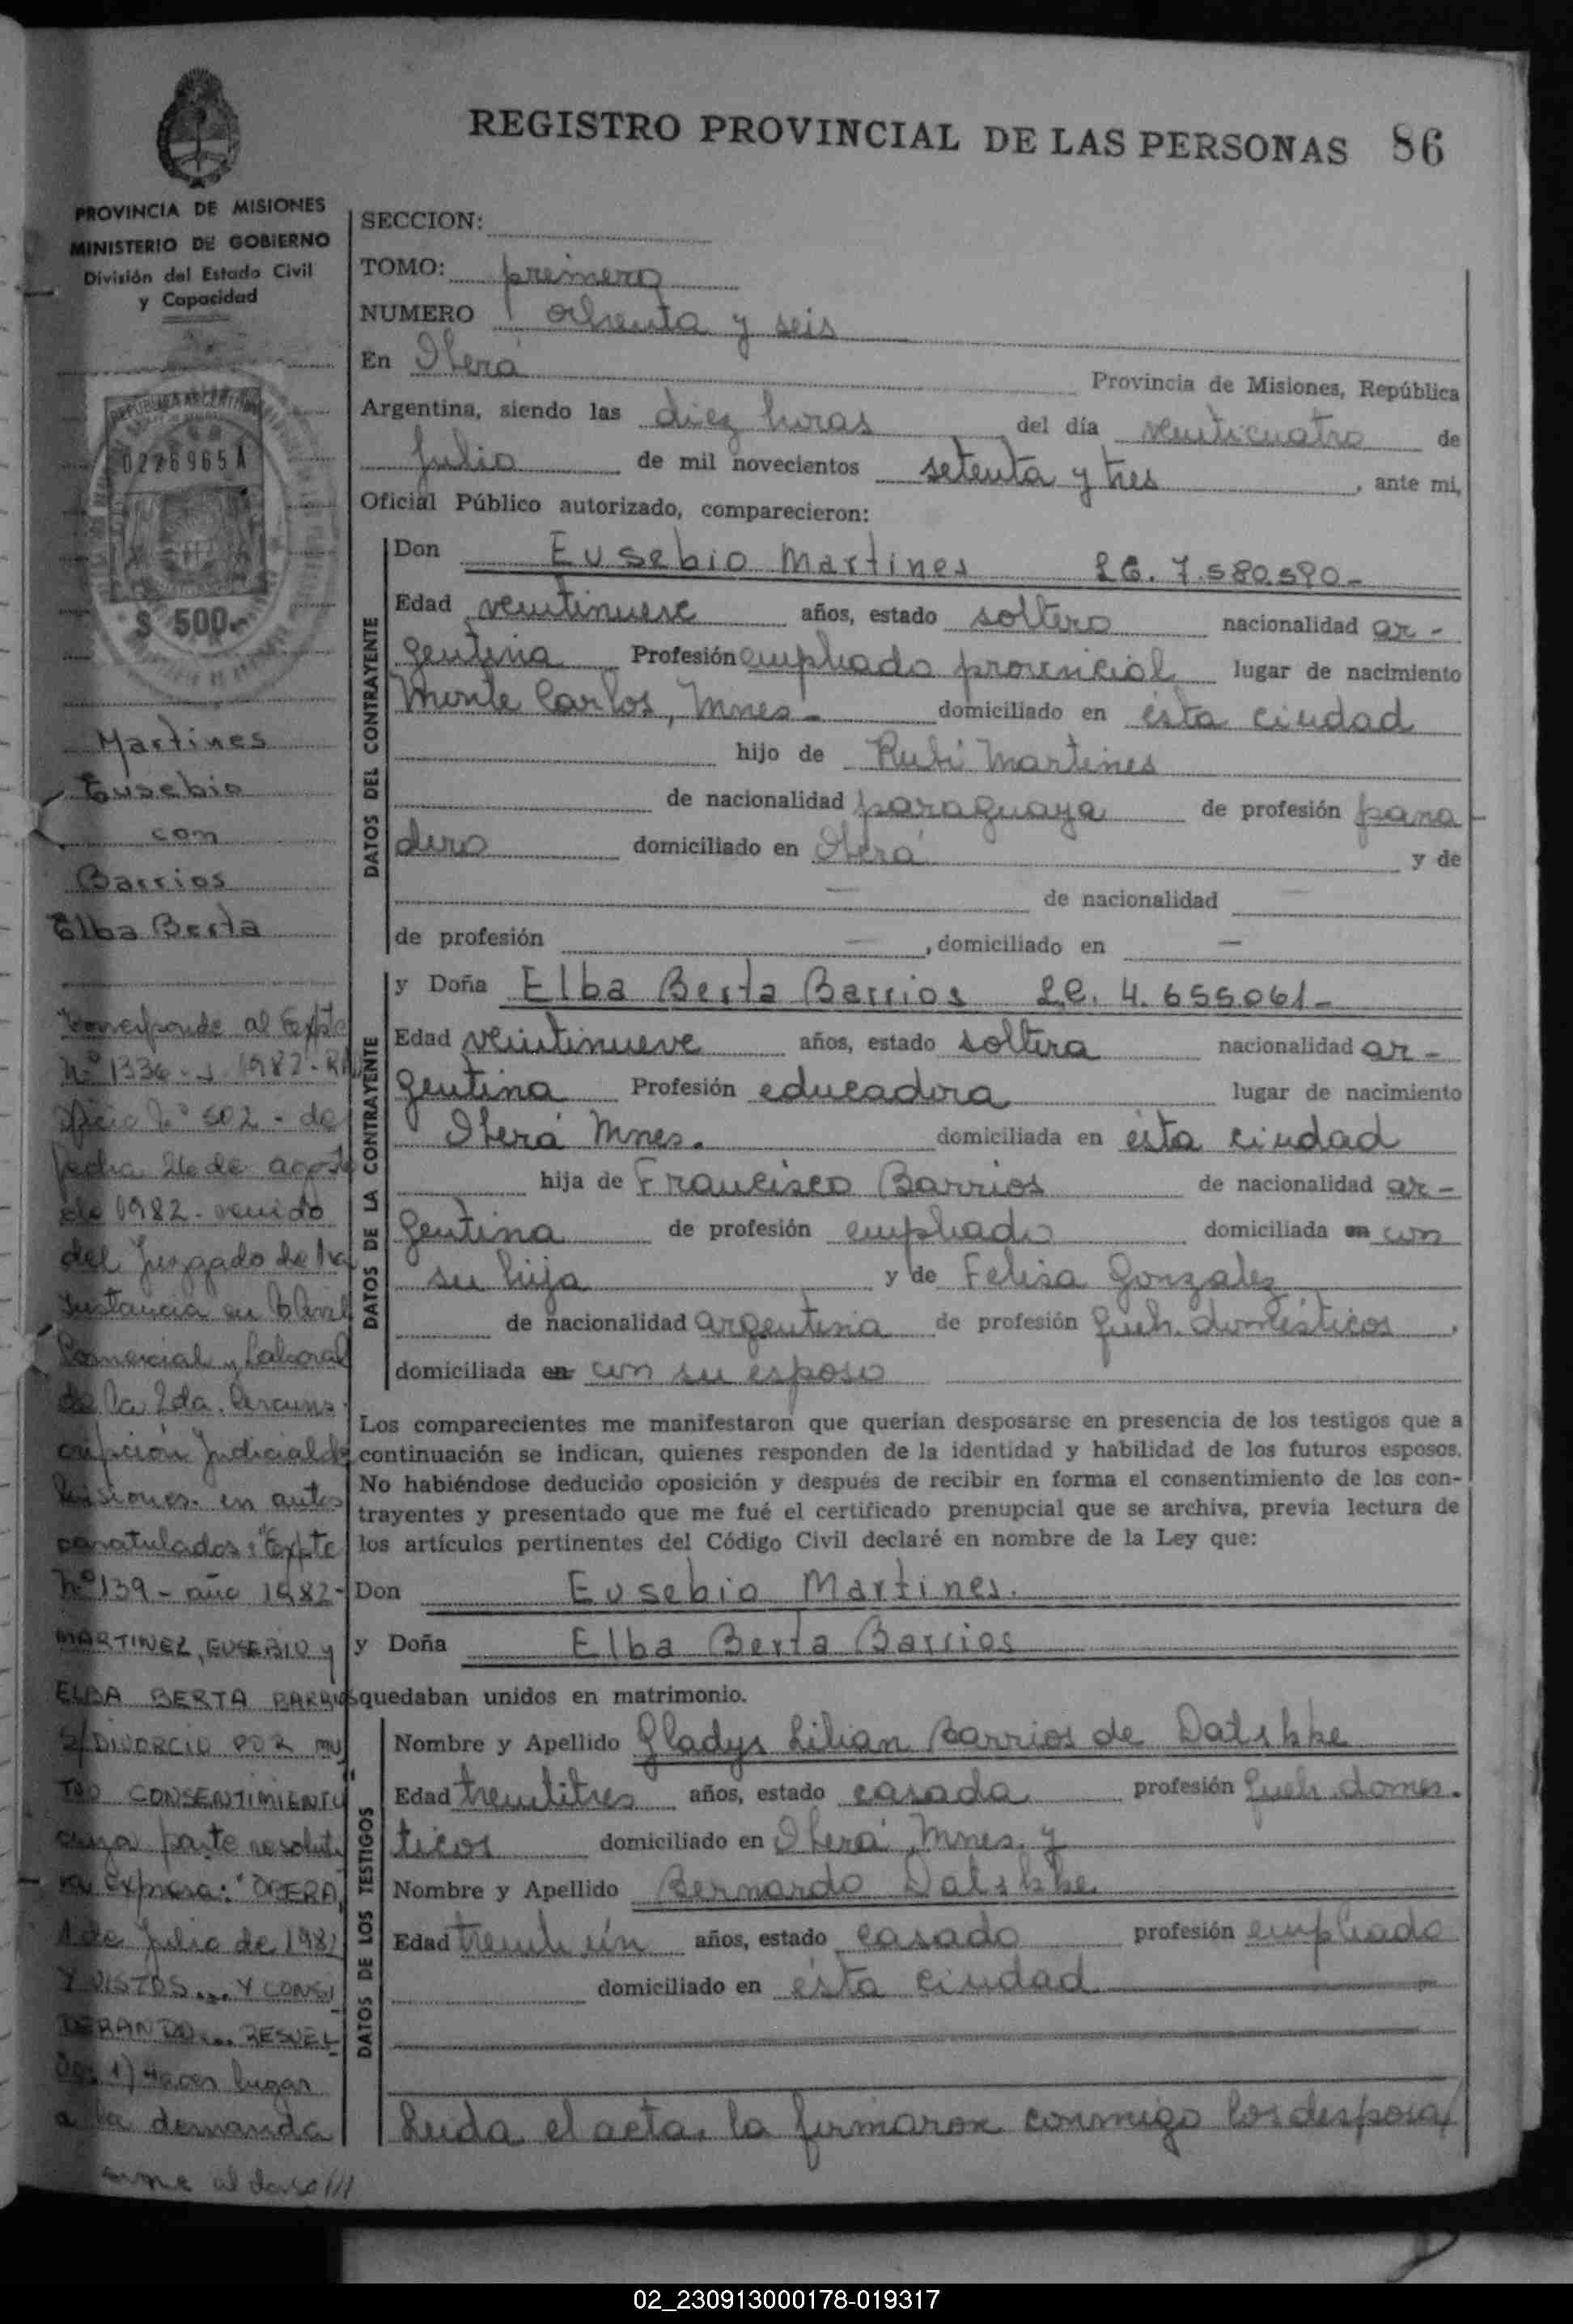 REGISTRO PROVINCIAL DE LAS PERSONAS 86
PROVINCIA DE MISIONES
MINISTERIO DE GOBIERNO
División del Estado Civil
y Capacidad
REPUBLICA ARGENTINA
0276965A
$ 500.-
Martines
Eusebio
con
Barrios
Elba Berta
Corresponde al Expte
Nº 1336- 1982-
Oficio Nº 502 - de
fecha 26 de agosto
de 1982 - venido
del Juzgado de 1ra
Instancia en lo Civil
Comercial y Laboral
de la 2da. Circuns-
cripción Judicial de
Misiones. en autos
caratulados: "Expte
Nº 139 - año 1982-
MARTINEZ, EUSEBIO y
ELBA BERTA BARRIOS
S/DIVORCIO POR MU
TUO CONSENTIMIENTO
cuya parte resoluti
va expresa: "OBERA,
1 de Julio de 1982
Y VISTOS... Y CONSI
DERANDO... RESUEL
1) Hacer lugar
a la demanda
al dorso ///
SECCION:
TOMO: primero
NUMERO ochenta y seis
En Oberá Provincia de Misiones, República
Argentina, siendo las diez horas del día veinticuatro de
Julio de mil novecientos setenta y tres, ante mi,
Oficial Público autorizado, comparecieron:
DATOS DEL CONTRAYENTE
Don Eusebio Martines L.E. 7.580.590-
Edad veintinueve años, estado soltero nacionalidad ar-
gentina Profesión empleado provincial lugar de nacimiento
Monte Carlos, Mnes.- domiciliado en ésta ciudad
hijo de Rubí Martines
de nacionalidad paraguaya de profesión pana-
dero domiciliado en Oberá y de
— de nacionalidad —
de profesión —, domiciliado en —
DATOS DE LA CONTRAYENTE
y Doña Elba Berta Barrios L.C. 4.655.061-
Edad veintinueve años, estado soltera nacionalidad ar-
gentina Profesión educadora lugar de nacimiento
Oberá Mnes. domiciliada en ésta ciudad
hija de Francisco Barrios de nacionalidad ar-
gentina de profesión empleado domiciliada en con
su hija y de Felisa Gonzalez
de nacionalidad argentina de profesión queh. domésticos,
domiciliada en con su esposo
Los comparecientes me manifestaron que querían desposarse en presencia de los testigos que a
continuación se indican, quienes responden de la identidad y habilidad de los futuros esposos.
No habiéndose deducido oposición y después de recibir en forma el consentimiento de los con-
trayentes y presentado que me fué el certificado prenupcial que se archiva, previa lectura de
los artículos pertinentes del Código Civil declaré en nombre de la Ley que:
Don Eusebio Martines.
y Doña Elba Berta Barrios
quedaban unidos en matrimonio.
DATOS DE LOS TESTIGOS
Nombre y Apellido Gladys Lilian Barrios de Datshke
Edad treintitres años, estado casada profesión queh. domes.
ticos domiciliado en Oberá, Mnes. y
Nombre y Apellido Bernardo Datshke
Edad treinta un años, estado casado profesión empleado
domiciliado en ésta ciudad
Leida el acta, la firmaron conmigo los desposa/
02_230913000178-019317